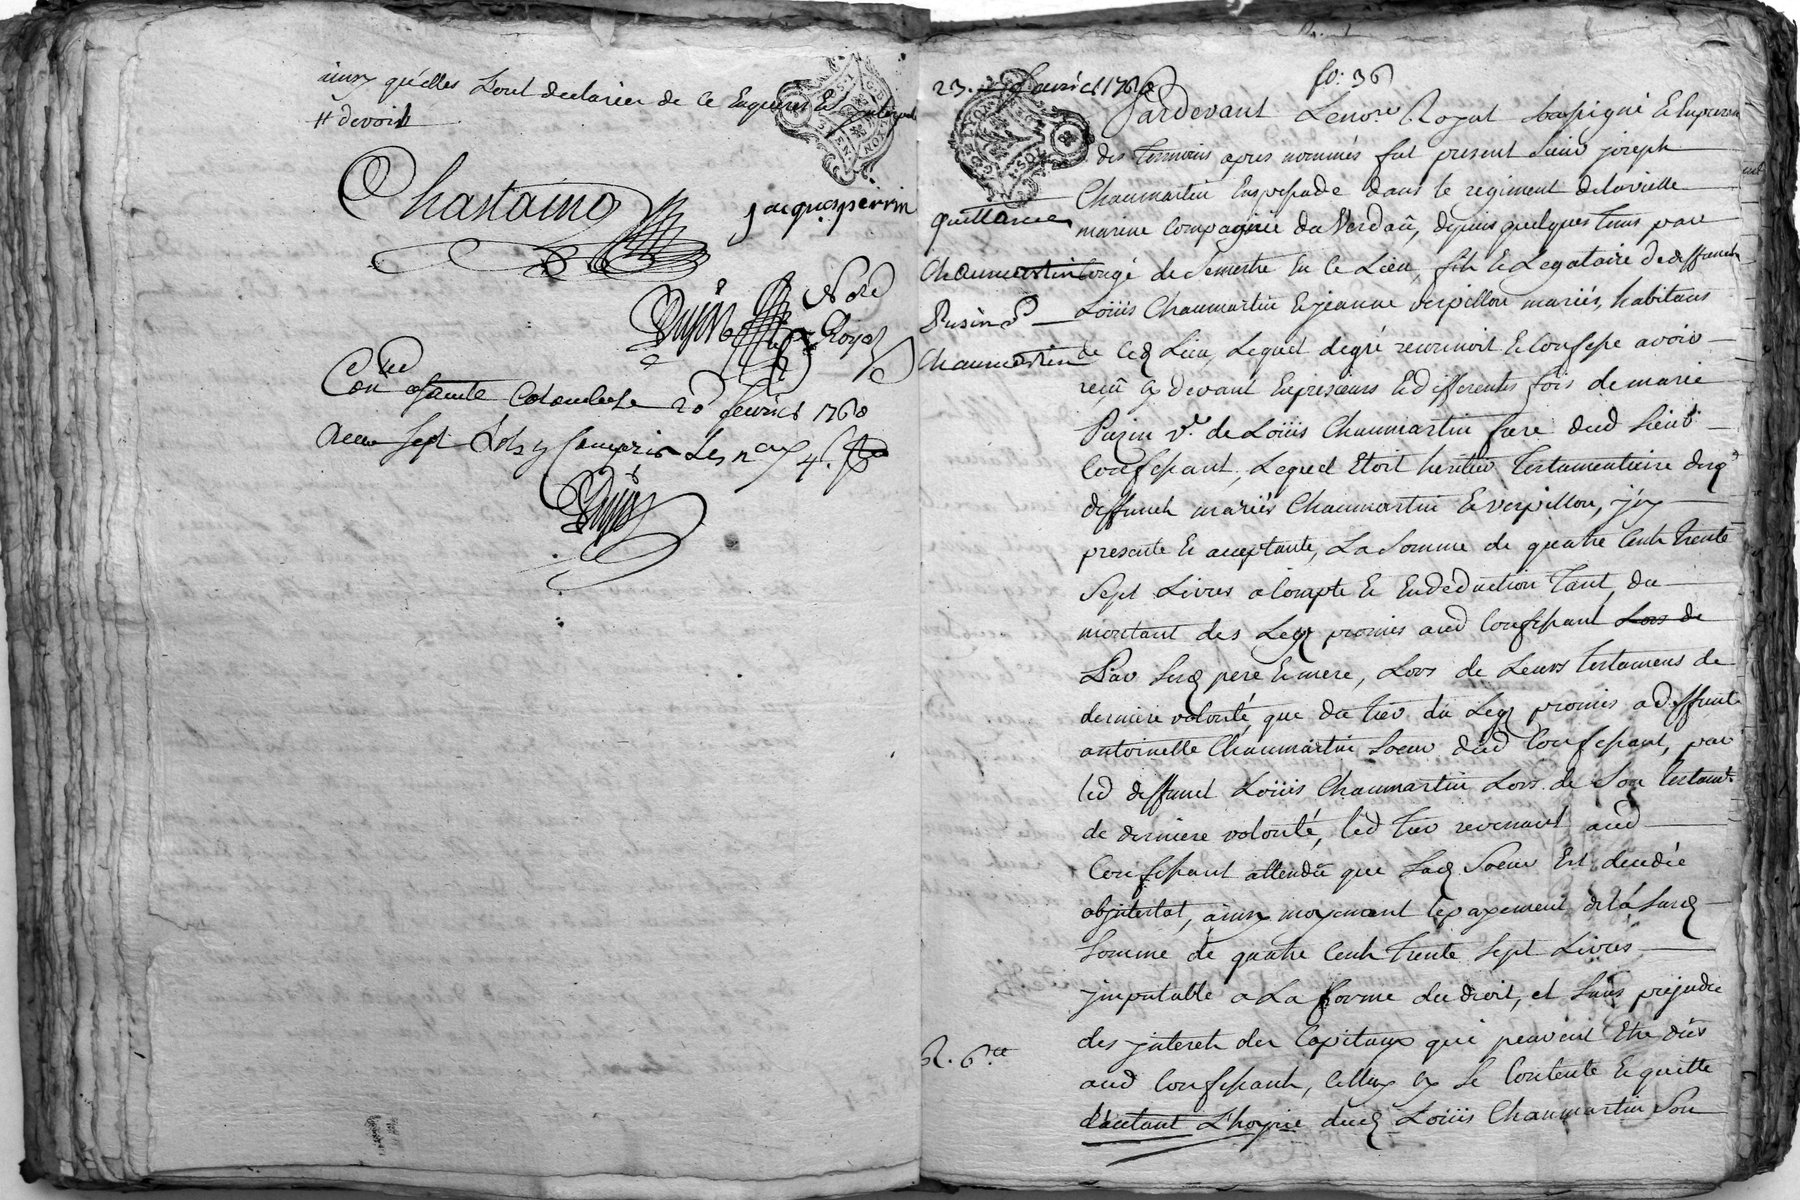 ainsy qu'elles sont declarées de ce Enquerir Et
# devoir
Chastaing
jacques perrin
Dujon Nore Royal
Con.lee a sainte Colombe le 20 fevrier 1760
Receu sept sols y Compris les n
Dujon
fo: 36
23. fevrier 1760
Pardevant Le no.re Royal soussigné & En presence
des temoins apres nommés fut present sieur joseph
Chaumartin Enspesade dans le regiment de la vielle
marine Compagnie du Verdau, depuis quelques tems par
Congé de semestre En ce Lieu, fils & Legataire de deffuncts
Loüis Chaumartin & jeanne verpillon mariés, habitans
de ced Lieu, Lequel de gré reconnoit & Confesse avoir
reçû cy devant En presieurs & differentes fois de marie
Puzin v.e de Loüis Chaumartin frere dud sieur
Confessant, Lequel Etoit heritier testamentaire desd
deffuncts mariés Chaumartin & verpillon, jcy
presente & acceptante, La somme de quatre Cents trente
sept Livres a Compte & En deduction tant du
montant des Legs promis aud Confessant Lors de
Par sesd pere & mere, Lors de Leurs testamens de
derniere volonté, que du tier du Legs promis a deffunte
antoinette Chaumartin soeur dud Confessant, par
led deffunct Loüis Chaumartin Lors de son testamt.
de derniere volonté, led tier revenant aud
Confessant attendû que sad soeur Est decedée
abjntestat, ainsy moyennant le payement de la susd
somme de quatre Cents trente sept Livres
jmputable a La forme du droit, et sans prejudice
des jnterets des Capitaux qui peuvent Etre dûs
aud Confessant, Celluy cy se Contente & quitte
d'autant L'hoyrie dud Loüis Chaumartin son
quittance
Chaumartin
Pusin &
Chaumartin
R. 6.ce